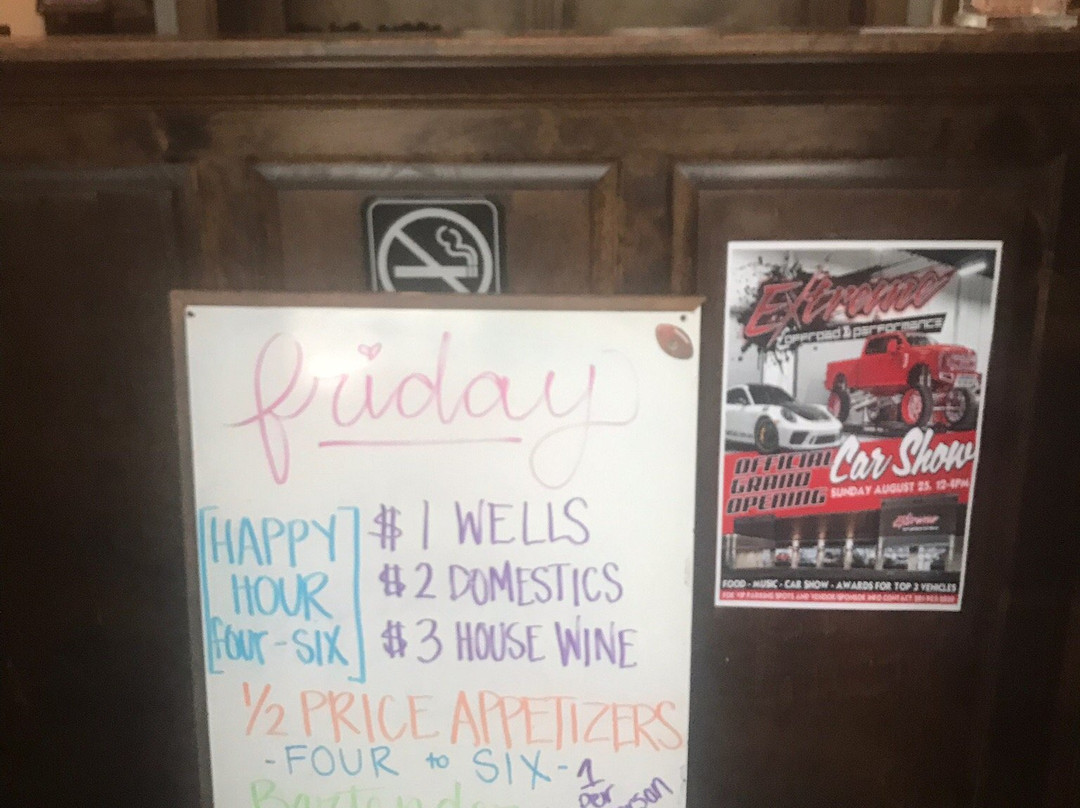 friday
[HAPPY
HOUR
four-SIX]
$1 WELLS
$2 DOMESTICS
$3 HOUSE WINE
1/2 PRICE APPETIZERS
-FOUR to SIX-
1
per
Extreme
offroad & performance
OFFICIAL
GRAND
OPENING
Car Show
SUNDAY AUGUST 25. 12-4PM
Extreme
FOOD - MUSIC - CAR SHOW - AWARDS FOR TOP 3 VEHICLES
FOR VIP PARKING SPOTS AND VENDOR/SPONSOR INFO CONTACT